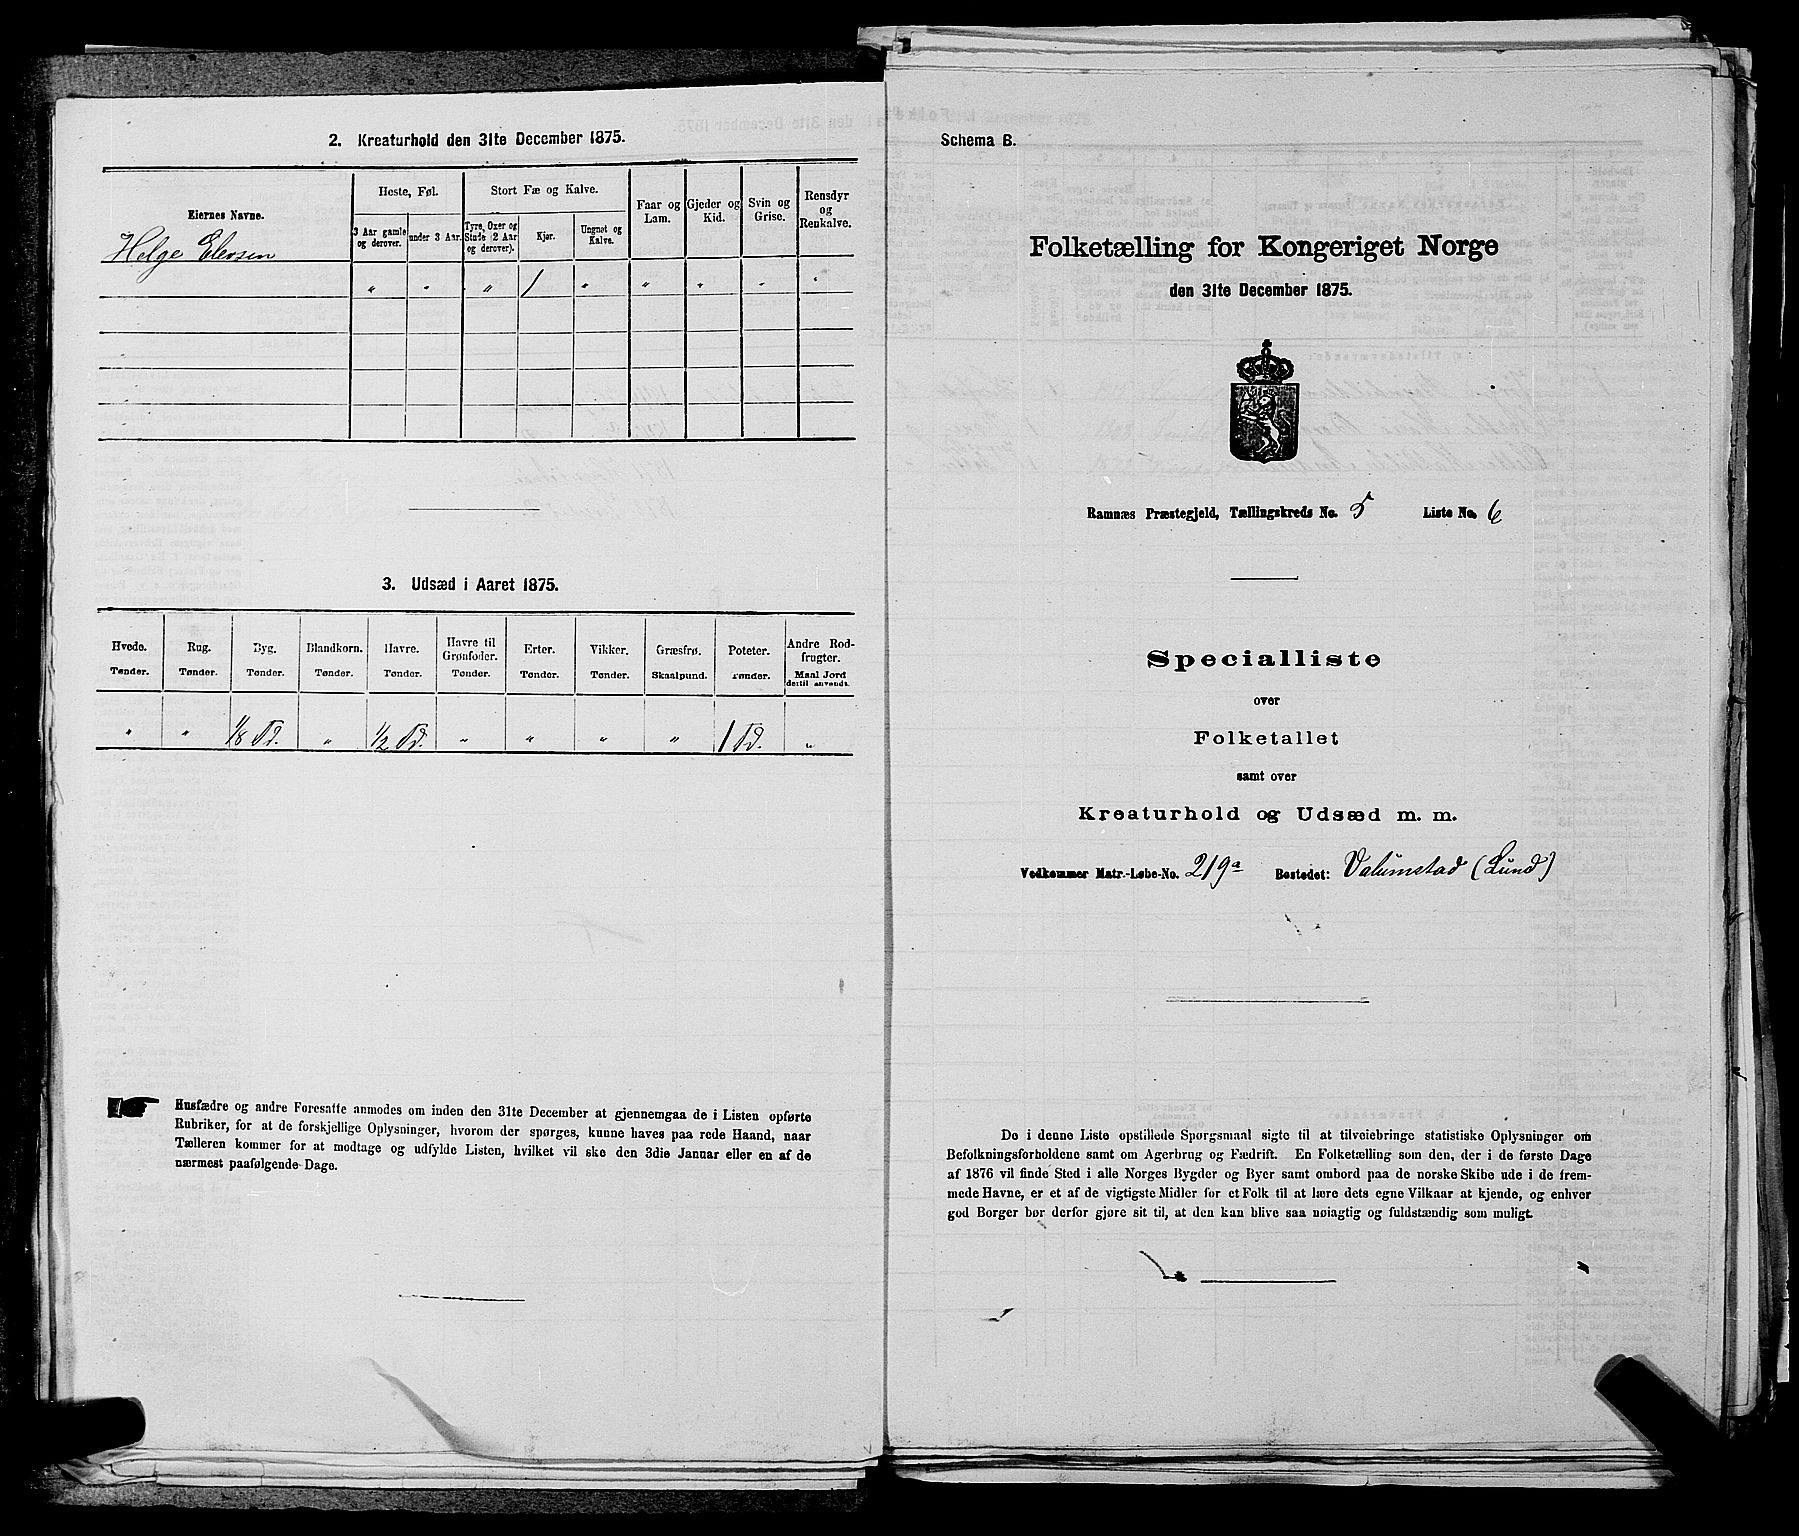 2. Kreaturhold den 31te December 1875.
Eiernes Navne.
Heste, Føl.
Stort Fæ og Kalve.
Faar og Lam.
Gjeder og Kid.
Svin og Grise.
Rensdyr og Renkalve.
3 Aar gamle og derover.
under 3 Aar.
Tyre, Oxer og Stude (2 Aar og derover).
Kjør.
Ungnøt og Kalve.
Helge Elevsen
" " " 1 " " " " "
3. Udsæd i Aaret 1875.
Hvede. Rug. Byg. Blandkorn. Havre. Havre til Grønfoder. Erter. Vikker. Græsfrø. Poteter. Andre Rodfrugter.
Tønder. Tønder. Tønder. Tønder. Tønder. Tønder. Tønder. Tønder. Skaalpund. Tønder. Maal Jord dertil anvendt.
" " 1/8 Td. " 1/2 Td. " " " " 1 Td. "
Husfædre og andre Foresatte anmodes om inden den 31te December at gjennemgaa de i Listen opførte
Rubriker, for at de forskjellige Oplysninger, hvorom der spørges, kunne haves paa rede Haand, naar
Tælleren kommer for at modtage og udfylde Listen, hvilket vil ske den 3die Januar eller en af de
nærmest paafølgende Dage.
Schema B.
Folketælling for Kongeriget Norge
den 31te December 1875.
Ramnæs Præstegjeld, Tællingskreds No. 5 Liste No. 6
Specialliste
over
Folketallet
samt over
Kreaturhold og Udsæd m. m.
Vedkommer Matr.-Løbe-No. 219a Bostedet: Valumstad (Lund)
De i denne Liste opstillede Spørgsmaal sigte til at tilveiebringe statistiske Oplysninger om
Befolkningsforholdene samt om Agerbrug og Fædrift. En Folketælling som den, der i de første Dage
af 1876 vil finde Sted i alle Norges Bygder og Byer samt ombord paa de norske Skibe ude i de frem-
mede Havne, er et af de vigtigste Midler for et Folk til at lære dets egne Vilkaar at kjende, og enhver
god Borger bør derfor gjøre sit til, at den kan blive saa nøiagtig og fuldstændig som muligt.